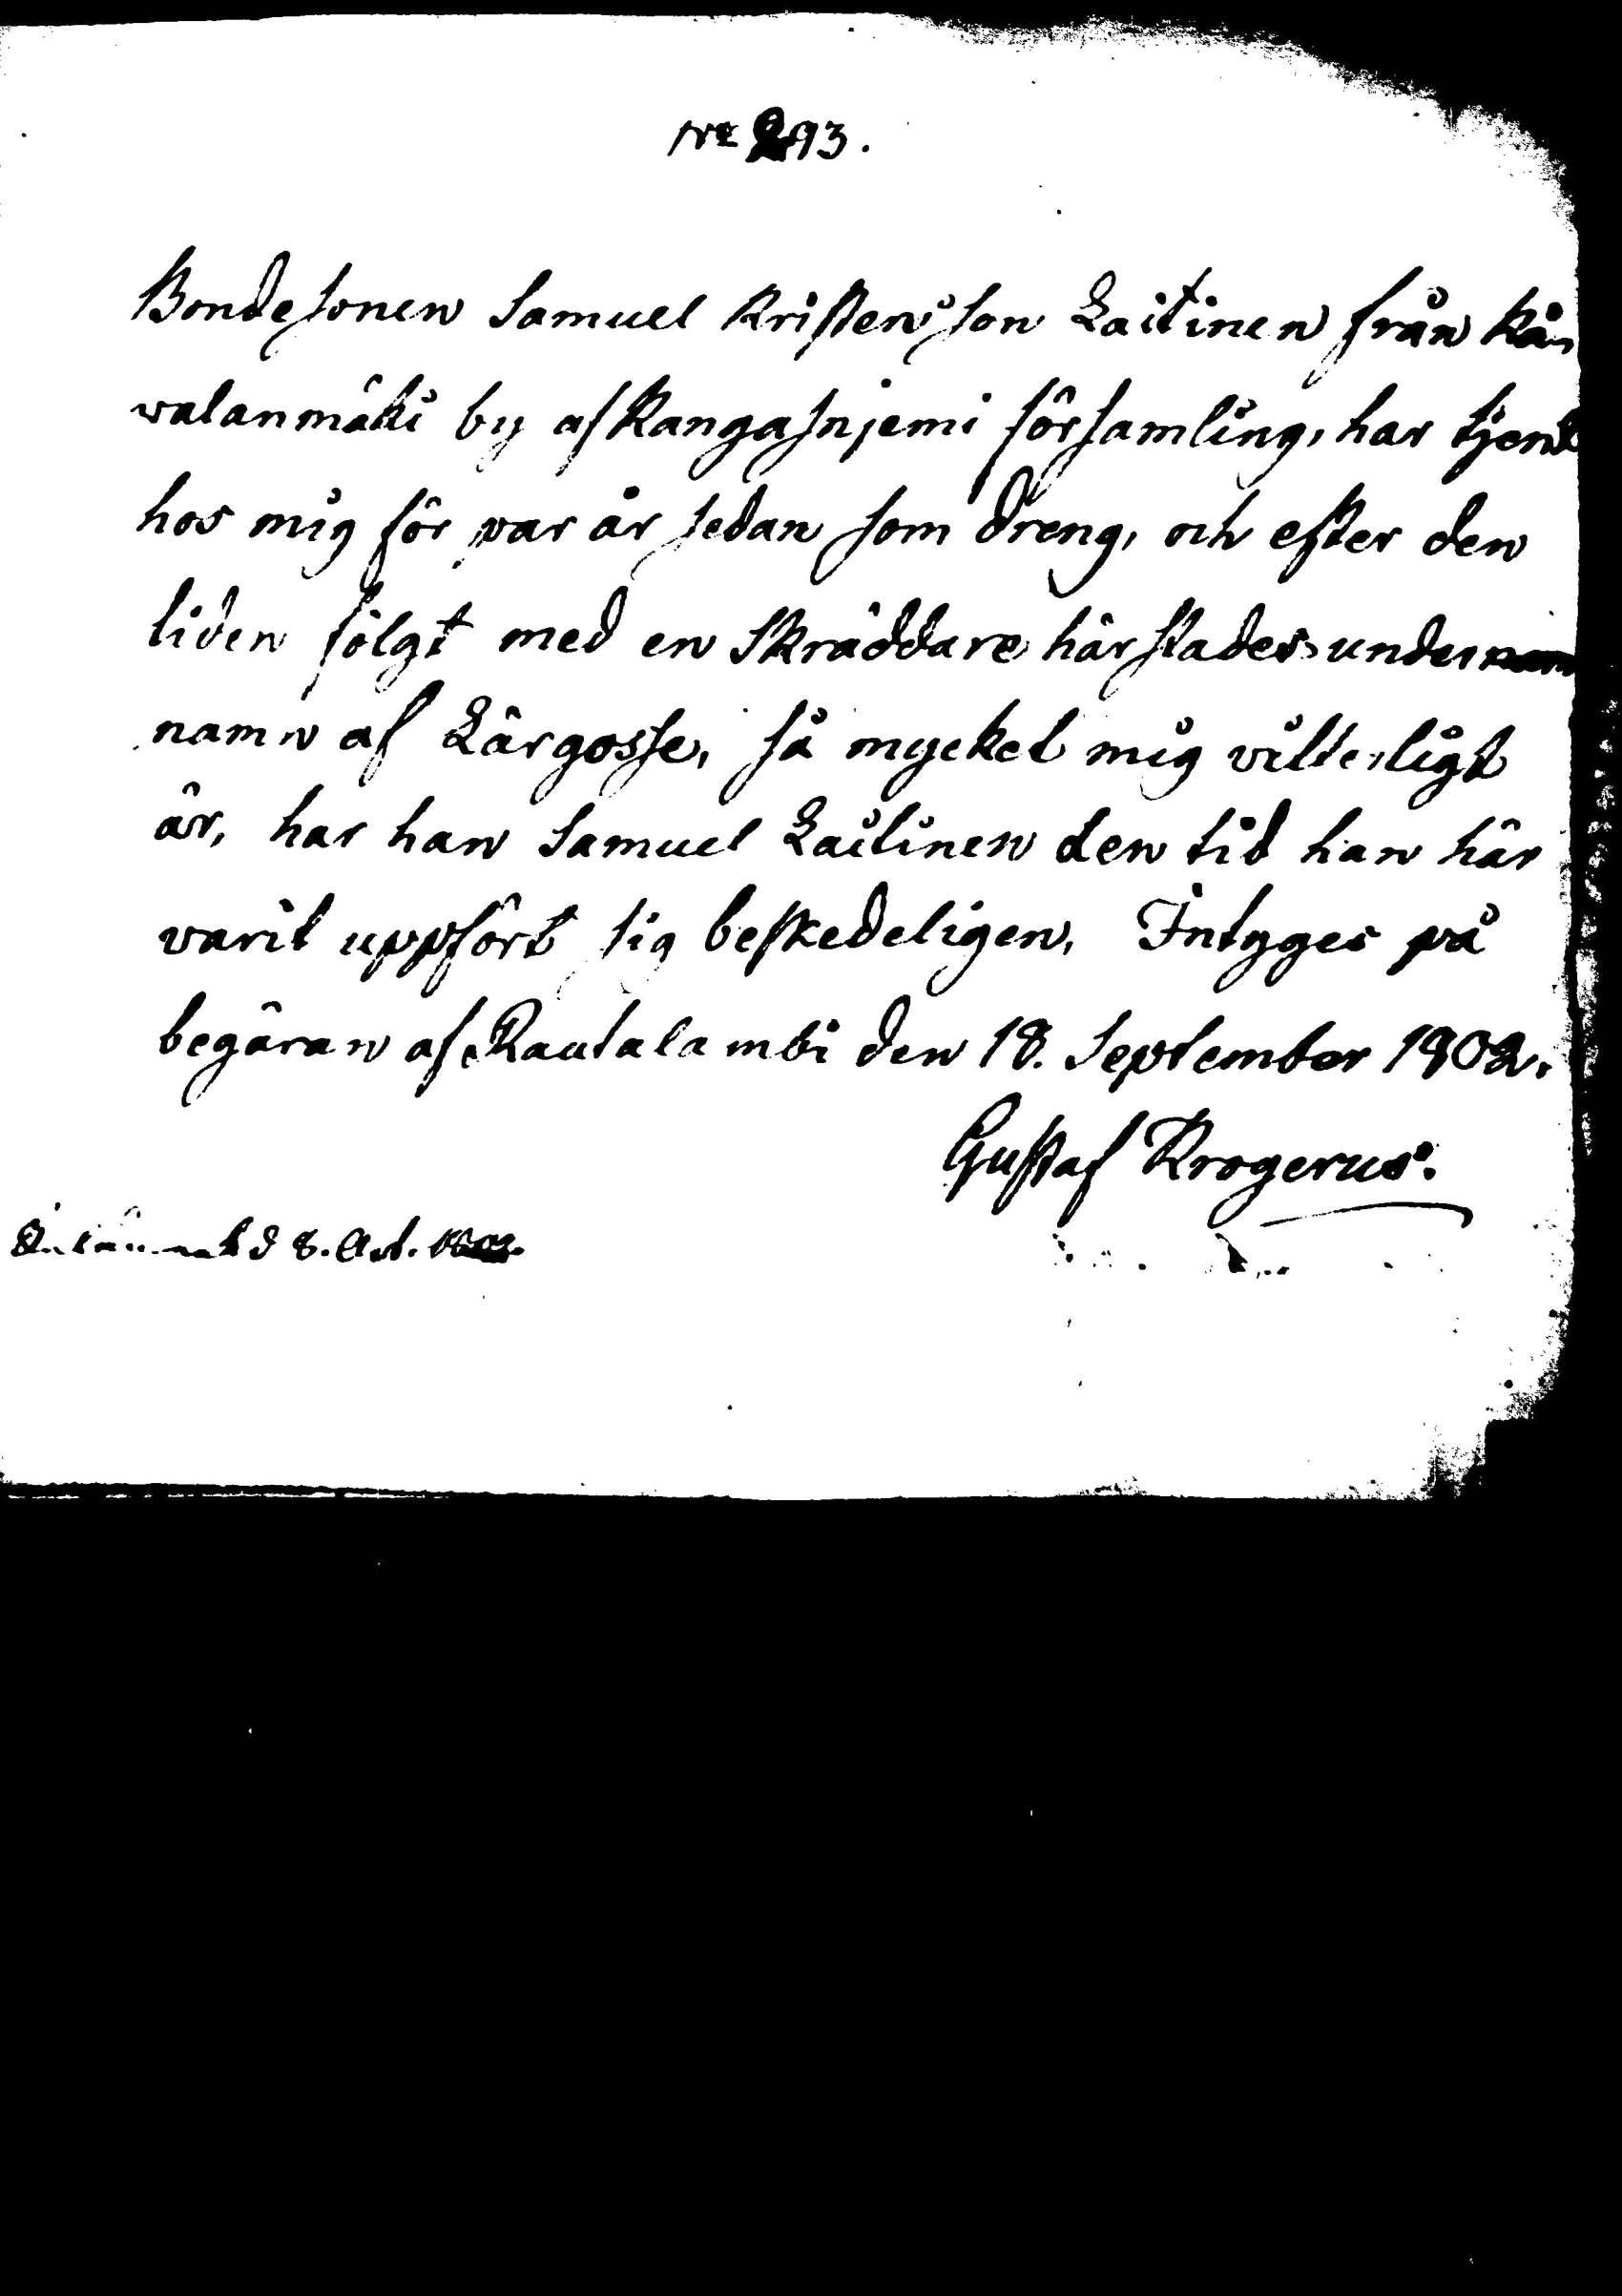 No 293.
Bondesonen Samuel Kristersson Laitinen från
walanmäki by af Kangasnjemi församling, har tjent
hos mig för par år sedan som dreng, och efter den
tiden fölgt med en Skräddare härstades under
namn af Lärgosse, så myckel mig vitterligt
är, har han Samuel Laitinen den tid han här
varit uppfört sig beskedeligen, Intyges på
begäran af Rautalambi den 18. September 1802.
Gustaf Krogerus.
d 8. Oct.